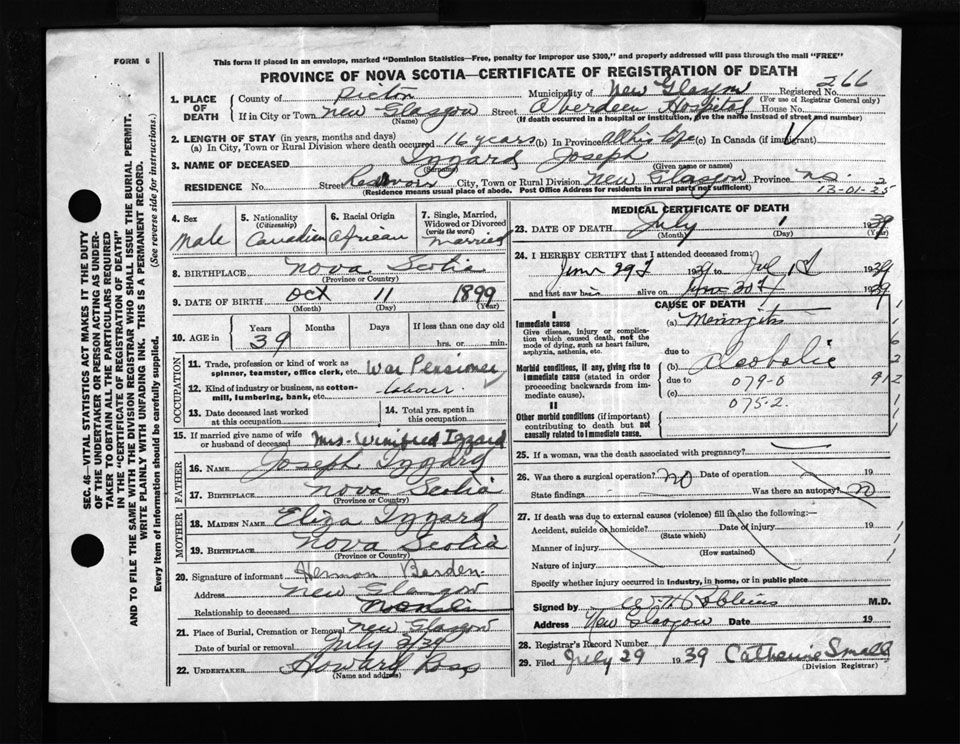 FORM 6
This form if placed in an envelope, marked "Dominion Statistics—Free, penalty for improper use $300," and properly addressed will pass through the mail "FREE"
PROVINCE OF NOVA SCOTIA—CERTIFICATE OF REGISTRATION OF DEATH
266
1. PLACE OF DEATH
County of Pictou Municipality of New Glasgow Registered No.
(For use of Registrar General only)
If in City or Town New Glasgow Street Aberdeen Hospital House No.
(Name) (If death occurred in a hospital or institution, give the name instead of street and number)
2. LENGTH OF STAY (in years, months and days)
(a) In City, Town or Rural Division where death occurred 16 years (b) In Province All his life (c) In Canada (if immigrant)
3. NAME OF DECEASED Izzard Joseph
(Surname) (Given name or names)
RESIDENCE No. Street City, Town or Rural Division New Glasgow Province N.S.
(Residence means usual place of abode. Post Office Address for residents in rural parts not sufficient)
2
13-01-25
4. Sex Male
5. Nationality (Citizenship) Canadian
6. Racial Origin African
7. Single, Married, Widowed or Divorced (write the word) Married
8. BIRTHPLACE Nova Scotia
(Province or Country)
9. DATE OF BIRTH Oct 11 1899
(Month) (Day) (Year)
10. AGE in Years 39 Months Days If less than one day old
hrs. or min.
OCCUPATION
11. Trade, profession or kind of work as spinner, teamster, office clerk, etc. War Pensioner
12. Kind of industry or business, as cotton-mill, lumbering, bank, etc. Laborer
13. Date deceased last worked at this occupation
14. Total yrs. spent in this occupation
15. If married give name of wife or husband of deceased Mrs. Winifred Izzard
FATHER
16. NAME Joseph Izzard
17. BIRTHPLACE Nova Scotia
(Province or Country)
MOTHER
18. MAIDEN NAME Eliza Izzard
19. BIRTHPLACE Nova Scotia
(Province or Country)
20. Signature of informant Hermon Borden
Address New Glasgow
Relationship to deceased
21. Place of Burial, Cremation or Removal New Glasgow
Date of burial or removal July 2/39
22. UNDERTAKER Howard
(Name and address)
MEDICAL CERTIFICATE OF DEATH
23. DATE OF DEATH July 1 1939
(Month) (Day) (Year)
24. I HEREBY CERTIFY that I attended deceased from:
June 29 1939 to July 1st 1939
and last saw him alive on June 30th 1939
CAUSE OF DEATH
I
Immediate cause
Give disease, injury or complication which caused death, not the mode of dying, such as heart failure, asphyxia, asthenia, etc.
(a) Meningitis
due to
Morbid conditions, if any, giving rise to immediate cause (stated in order proceeding backwards from immediate cause).
(b) Alcoholic
due to 079-0
(c)
075-2
912
II
Other morbid conditions (if important) contributing to death but not causally related to immediate cause.
25. If a woman, was the death associated with pregnancy?
26. Was there a surgical operation? No Date of operation 19
State findings Was there an autopsy? No
27. If death was due to external causes (violence) fill in also the following:—
Accident, suicide or homicide? Date of injury 19
(State which)
Manner of injury
(How sustained)
Nature of injury
Specify whether injury occurred in industry, in home, or in public place
Signed by M.D.
Address New Glasgow Date 19
28. Registrar's Record Number
29. Filed July 29 1939 Catherine Small
(Division Registrar)
SEC. 46—VITAL STATISTICS ACT MAKES IT THE DUTY OF THE UNDERTAKER OR PERSON ACTING AS UNDERTAKER TO OBTAIN ALL THE PARTICULARS REQUIRED IN THE "CERTIFICATE OF REGISTRATION OF DEATH" AND TO FILE THE SAME WITH THE DIVISION REGISTRAR WHO SHALL ISSUE THE BURIAL PERMIT.
WRITE PLAINLY WITH UNFADING INK. THIS IS A PERMANENT RECORD.
Every item of information should be carefully supplied. (See reverse side for instructions.)